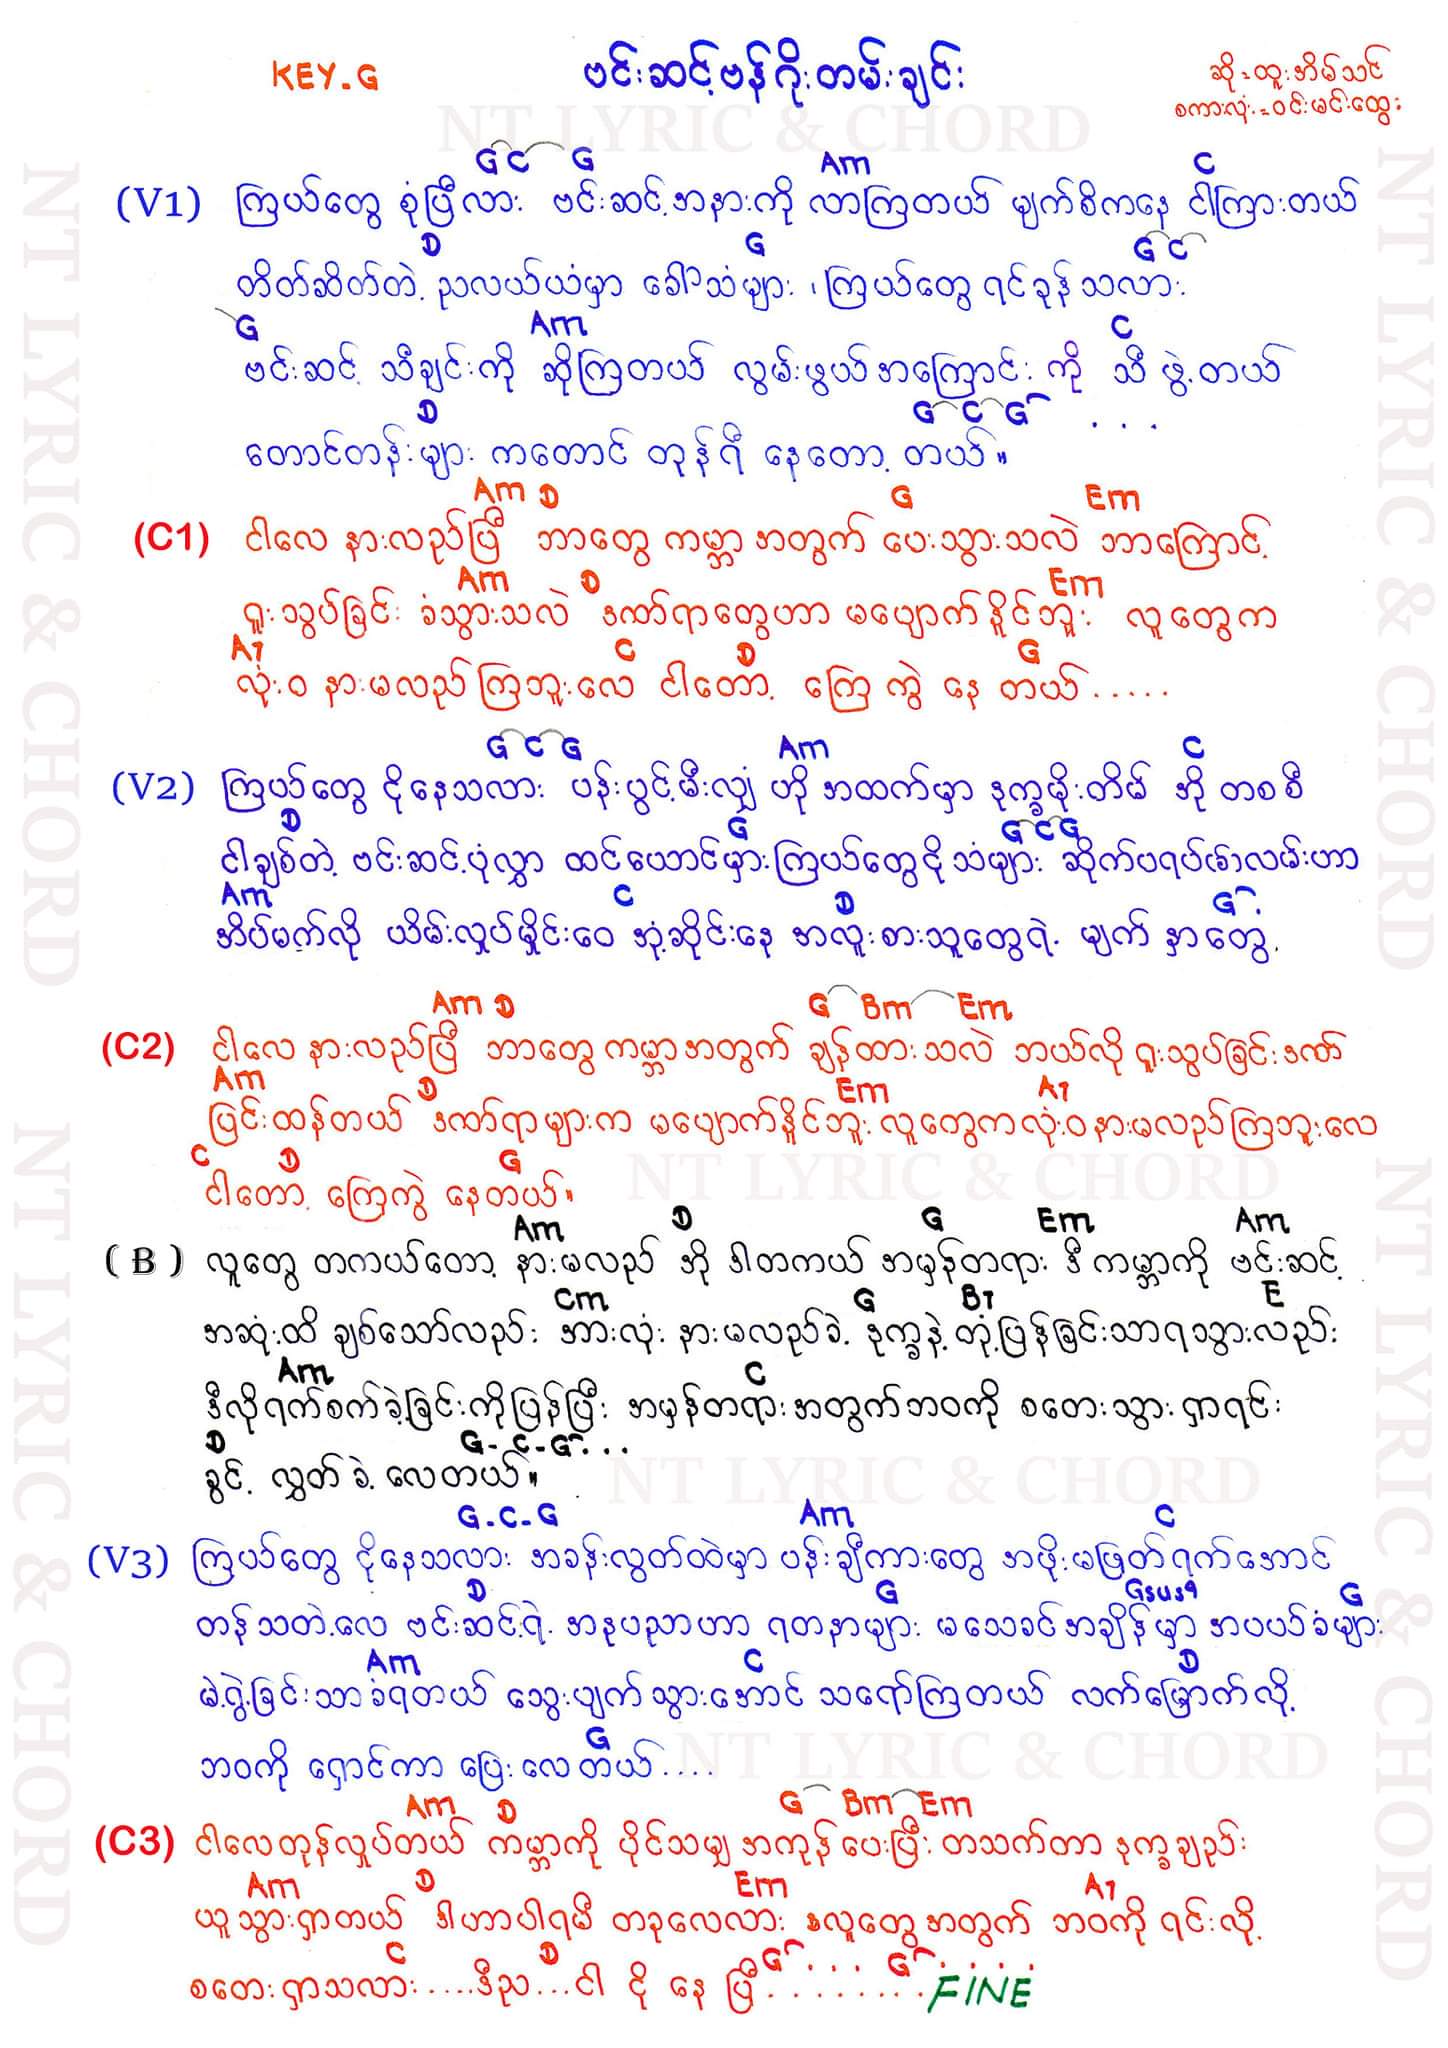 KEY.G
ဗင်းဆင့်ဗန်ဂိုးတမ်းချင်း
ဆို=ထူးအိမ်သင်
စကားလုံး=ဝင်းမင်းထွေး
NT LYRIC & CHORD
G C G Am C
(V1) ကြယ်တွေ စုံပြီလား ဗင်းဆင့်အနားကို လာကြတယ် မျက်စိကနေ ငါကြားတယ်
D G G C
တိတ်ဆိတ်တဲ့ ညလယ်ယံမှာ ခေါ်သံများ ၊ ကြယ်တွေ ရင်ခုန်သလား
G Am C
ဗင်းဆင့် သီချင်းကို ဆိုကြတယ် လွမ်းဖွယ်အကြောင်း ကို သီ ဖွဲ့တယ်
D G C G . . .
တောင်တန်းများ ကတောင် တုန်ရီ နေတော့ တယ်။
Am D G Em
(C1) ငါလေ နားလည်ပြီ ဘာတွေ ကမ္ဘာအတွက် ပေးသွားသလဲ ဘာကြောင့်
Am D Em
ရူးသွပ်ခြင်း ခံသွားသလဲ ဒဏ်ရာတွေဟာ မပျောက်နိူင်ဘူး လူတွေက
A7 C D G
လုံးဝ နားမလည်ကြဘူးလေ ငါတော့ ကြေကွဲ နေ တယ်.....
G C G Am C
(V2) ကြယ်တွေ ငိုနေသလား ပန်းပွင့်မီးလျှံ ဟို အထက်မှာ ဒုက္ခမိုးတိမ် အို တစစီ
D G G C G
ငါချစ်တဲ့ ဗင်းဆင့်ပုံလွှာ ထင်ယောင်မှားကြယ်တွေငိုသံများ ဆိုက်ပရပ်စ်လမ်းဟာ
Am C D G
အိပ်မက်လို ယိမ်းလှုပ်မှိုင်းဝေ အုံ့ဆိုင်းနေ အလူးစားသူတွေရဲ့ မျက်နှာတွေ့
Am D G Bm Em
(C2) ငါလေ နားလည်ပြီ ဘာတွေ ကမ္ဘာအတွက် ချန်ထားသလဲ ဘယ်လို ရူးသွပ်ခြင်းဒဏ်
Am D Em A7
ပြင်းထန်တယ် ဒဏ်ရာများက မပျောက်နိူင်ဘူး လူတွေကလုံးဝနားမလည်ကြဘူးလေ
C D G
ငါတော့ ကြေကွဲ နေတယ်။
NT LYRIC & CHORD
Am D G Em Am
(B) လူတွေ တကယ်တော့ နားမလည် အို ဒါတကယ် အမှန်တရား ဒီ ကမ္ဘာကို ဗင်းဆင့်
Cm G B7 E
အဆုံးထိ ချစ်သော်လည်း အားလုံး နားမလည်ခဲ့ ဒုက္ခနဲ့ တုံ့ပြန်ခြင်းသာရသွားလည်း
Am C
ဒီလိုရက်စက်ခဲ့ခြင်းကိုပြန်ပြီး အမှန်တရားအတွက်ဘဝကို စတေးသွားရှာရင်း
D G- C-G ...
ခွင့် လွှတ်ခဲ့ လေတယ်။
NT LYRIC & CHORD
G-C-G Am C
(V3) ကြယ်တွေ ငိုနေသလား အခန်းလွတ်ထဲမှာ ပန်းချီကားတွေ အဖိုးမဖြတ်ရက်အောင်
D G Gsus4 G
တန်သတဲ့လေ ဗင်းဆင့်ရဲ့ အနုပညာဟာ ရတနာများ မသေခင်အချိန်မှာ အပယ်ခံများ
Am C D
မဲ့ရွဲ့ခြင်းသာခံရတယ် သွေးပျက်သွားအောင် သရော်ကြတယ် လက်မြှောက်လို့
G
ဘဝကို ရှောင်ကာ ပြေးလေတယ်....
NT LYRIC & CHORD
Am D G Bm Em
(C3) ငါလေတုန်လှုပ်တယ် ကမ္ဘာကို ပိုင်သမျှ အကုန်ပေးပြီး တသက်တာ ဒုက္ခချည်း
Am D Em A7
ယူသွားရှာတယ် ဒါဟာပါရမီ တခုလေလား လူတွေအတွက် ဘဝကို ရင်းလို့
C D G ... G ....
စတေးရှာသလား....ဒီည...ငါ ငို နေ ပြီ........FINE
NT LYRIC & CHORD
NT LYRIC & CHORD
NT LYRIC & CHORD
NT LYRIC & CHORD